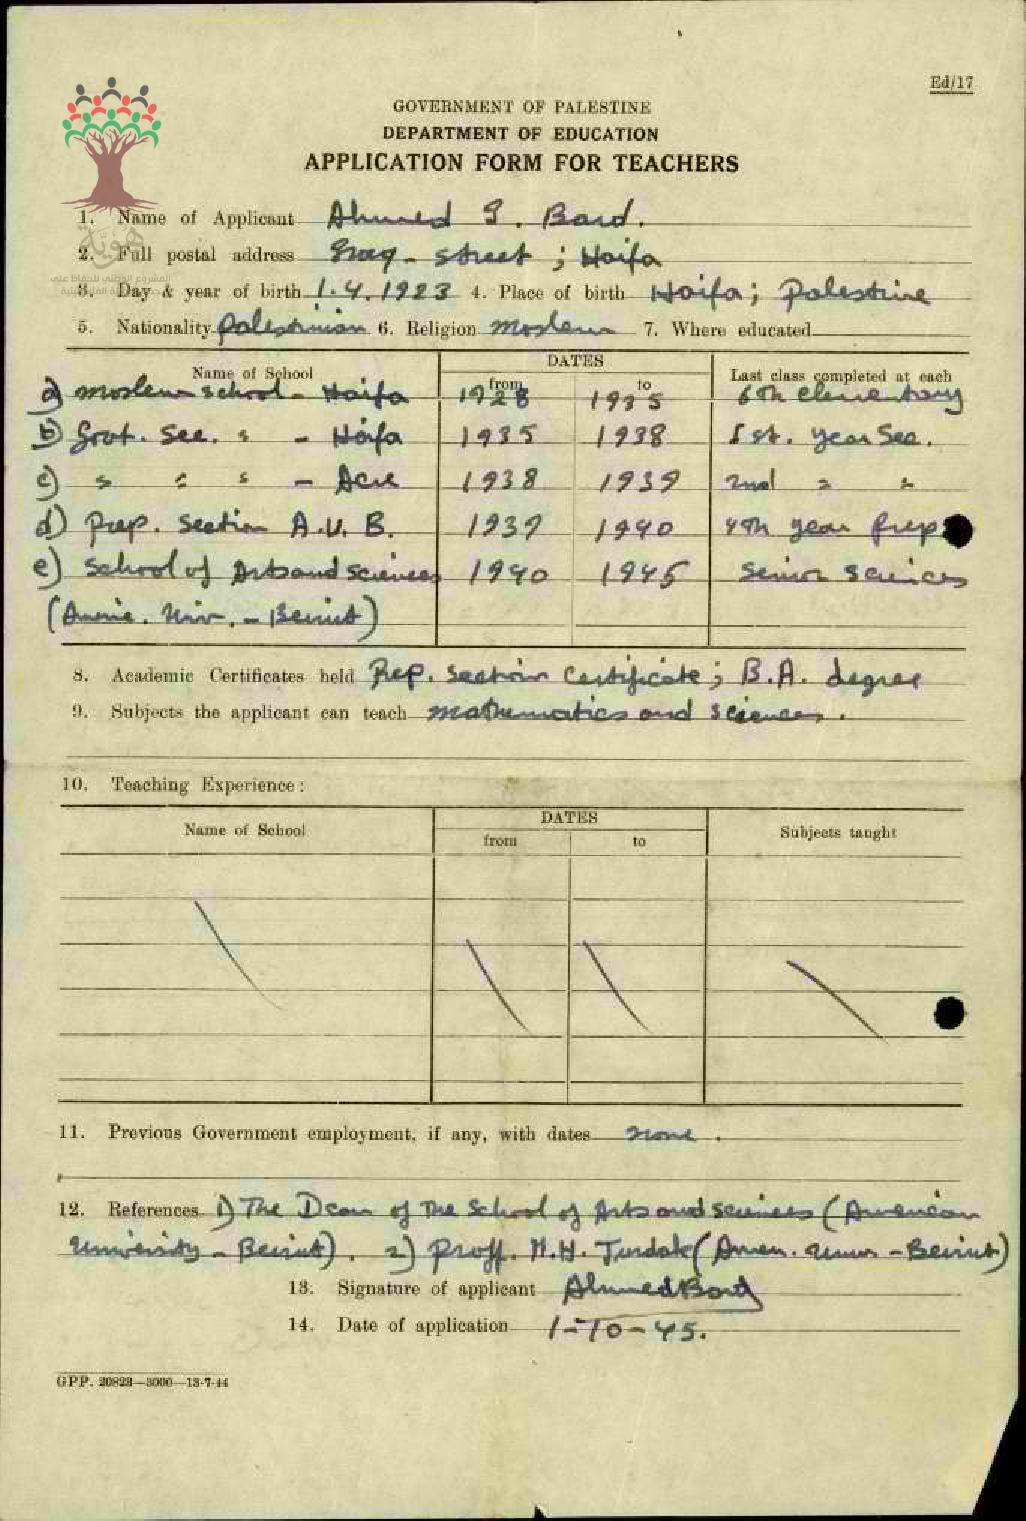 Ed/17
GOVERNMENT OF PALESTINE
DEPARTMENT OF EDUCATION
APPLICATION FORM FOR TEACHERS
1. Name of Applicant Ahmed
2. Full postal address street; Haifa
هوية
المشروع الوطني للحفاظ على
3. Day & year of birth 1.4.1923 4. Place of birth Haifa; Palestine
5. Nationality palestinian 6. Religion moslem 7. Where educated
Name of School DATES from to Last class completed at each
a) moslem school - Haifa 1928 1935 6th elementary
b) Govt. Sec. " - Haifa 1935 1938 1st. year Sec.
c) " " " - Acre 1938 1939 2nd " "
d) Prep. Section A.U.B. 1939 1940 4th year prep
e) School of Arts and sciences 1940 1945 Senior sciences
(Amer. Univ. - Beirut)
8. Academic Certificates held Prep. section certificate; B.A. degree
9. Subjects the applicant can teach mathematics and sciences.
10. Teaching Experience:
Name of School DATES from to Subjects taught
11. Previous Government employment, if any, with dates none.
12. References 1) The Dean of the School of Arts and sciences (American
University - Beirut). 2) Proff. (Amer. Univ - Beirut)
13. Signature of applicant Ahmed
14. Date of application 1-10-45.
GPP. 20823—3000—13-7-44